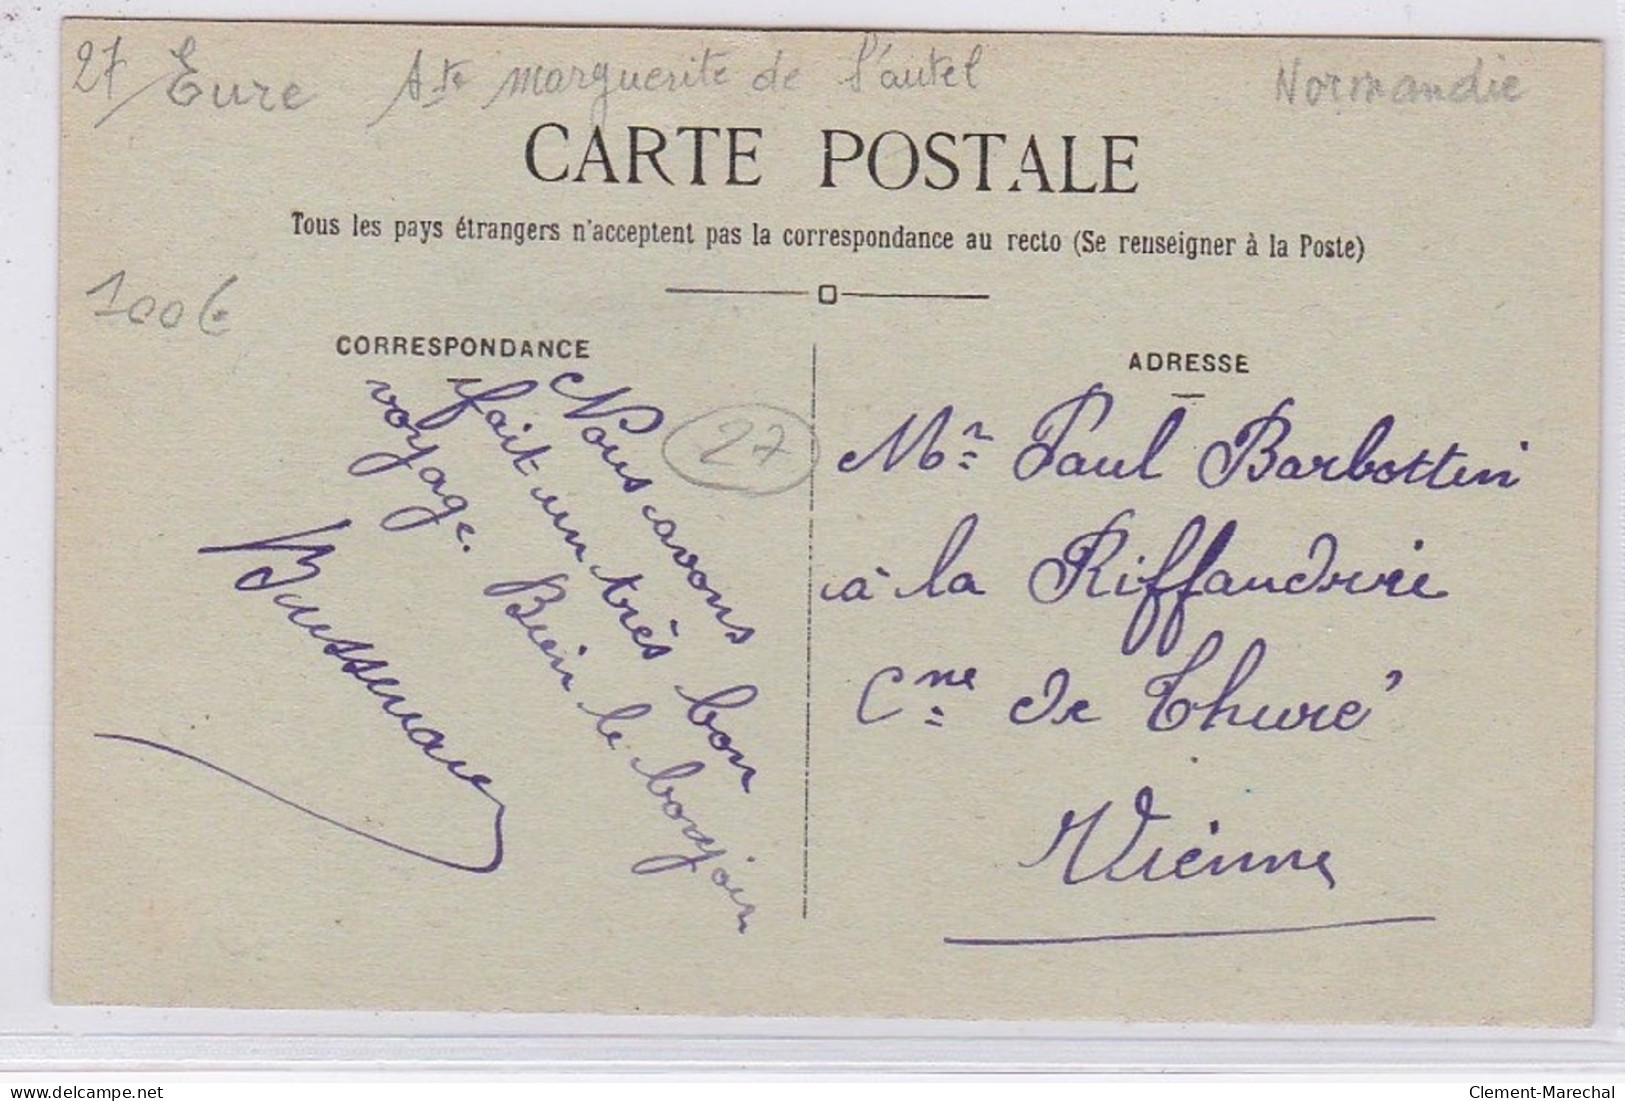 27/ Eure Ste marguerite de l'autel Normandie
CARTE POSTALE
Tous les pays étrangers n'acceptent pas la correspondance au recto (Se renseigner à la Poste)
100€
CORRESPONDANCE
Nous avons
fait un très bon
voyage. Bien le bonjour
27
ADRESSE
Mr. Paul Barbottin
à la Riffaudrie
Cne de Thuré
Vienne
delcampe.net
Clement-Marechal